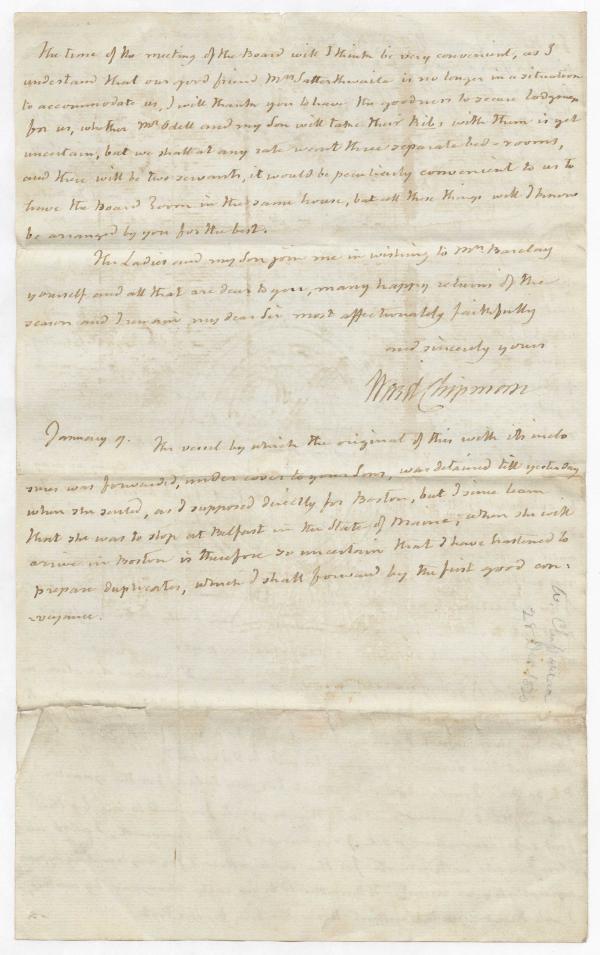 The time of the meeting of the Board will I think be very convenient, as I
understand that our good friend Mrs Satterthwaite is no longer in a situation
to accommodate us, I will thank you to have the goodness to secure lodgings
for us, whether Mr Odell and my Son will take their Ribs with them is yet
uncertain, but we shall at any rate want three separate bed-rooms,
and there will be two servants, it would be peculiarly convenient to us to
have the Board Room in the same house, but all these things will I know
be arranged by you for the best.
The Ladies and my Son join me in wishing to Mrs Barclay
yourself and all that are dear to you, many happy returns of the
season and I remain my dear Sir most affectionately faithfully
and sincerely yours
Ward Chipman
January 9. The vessel by which the original of this with its inclo
sures was forwarded, under cover to your Sons, was detained till yesterday
when she sailed, as I supposed directly for Boston, but I since learn
that she was to stop at Belfast in the State of Maine; when she will
arrive in Boston is therefore so uncertain that I have hastened to
prepare duplicates, which I shall forward by the first good con-
-veyance.
W. Chipman